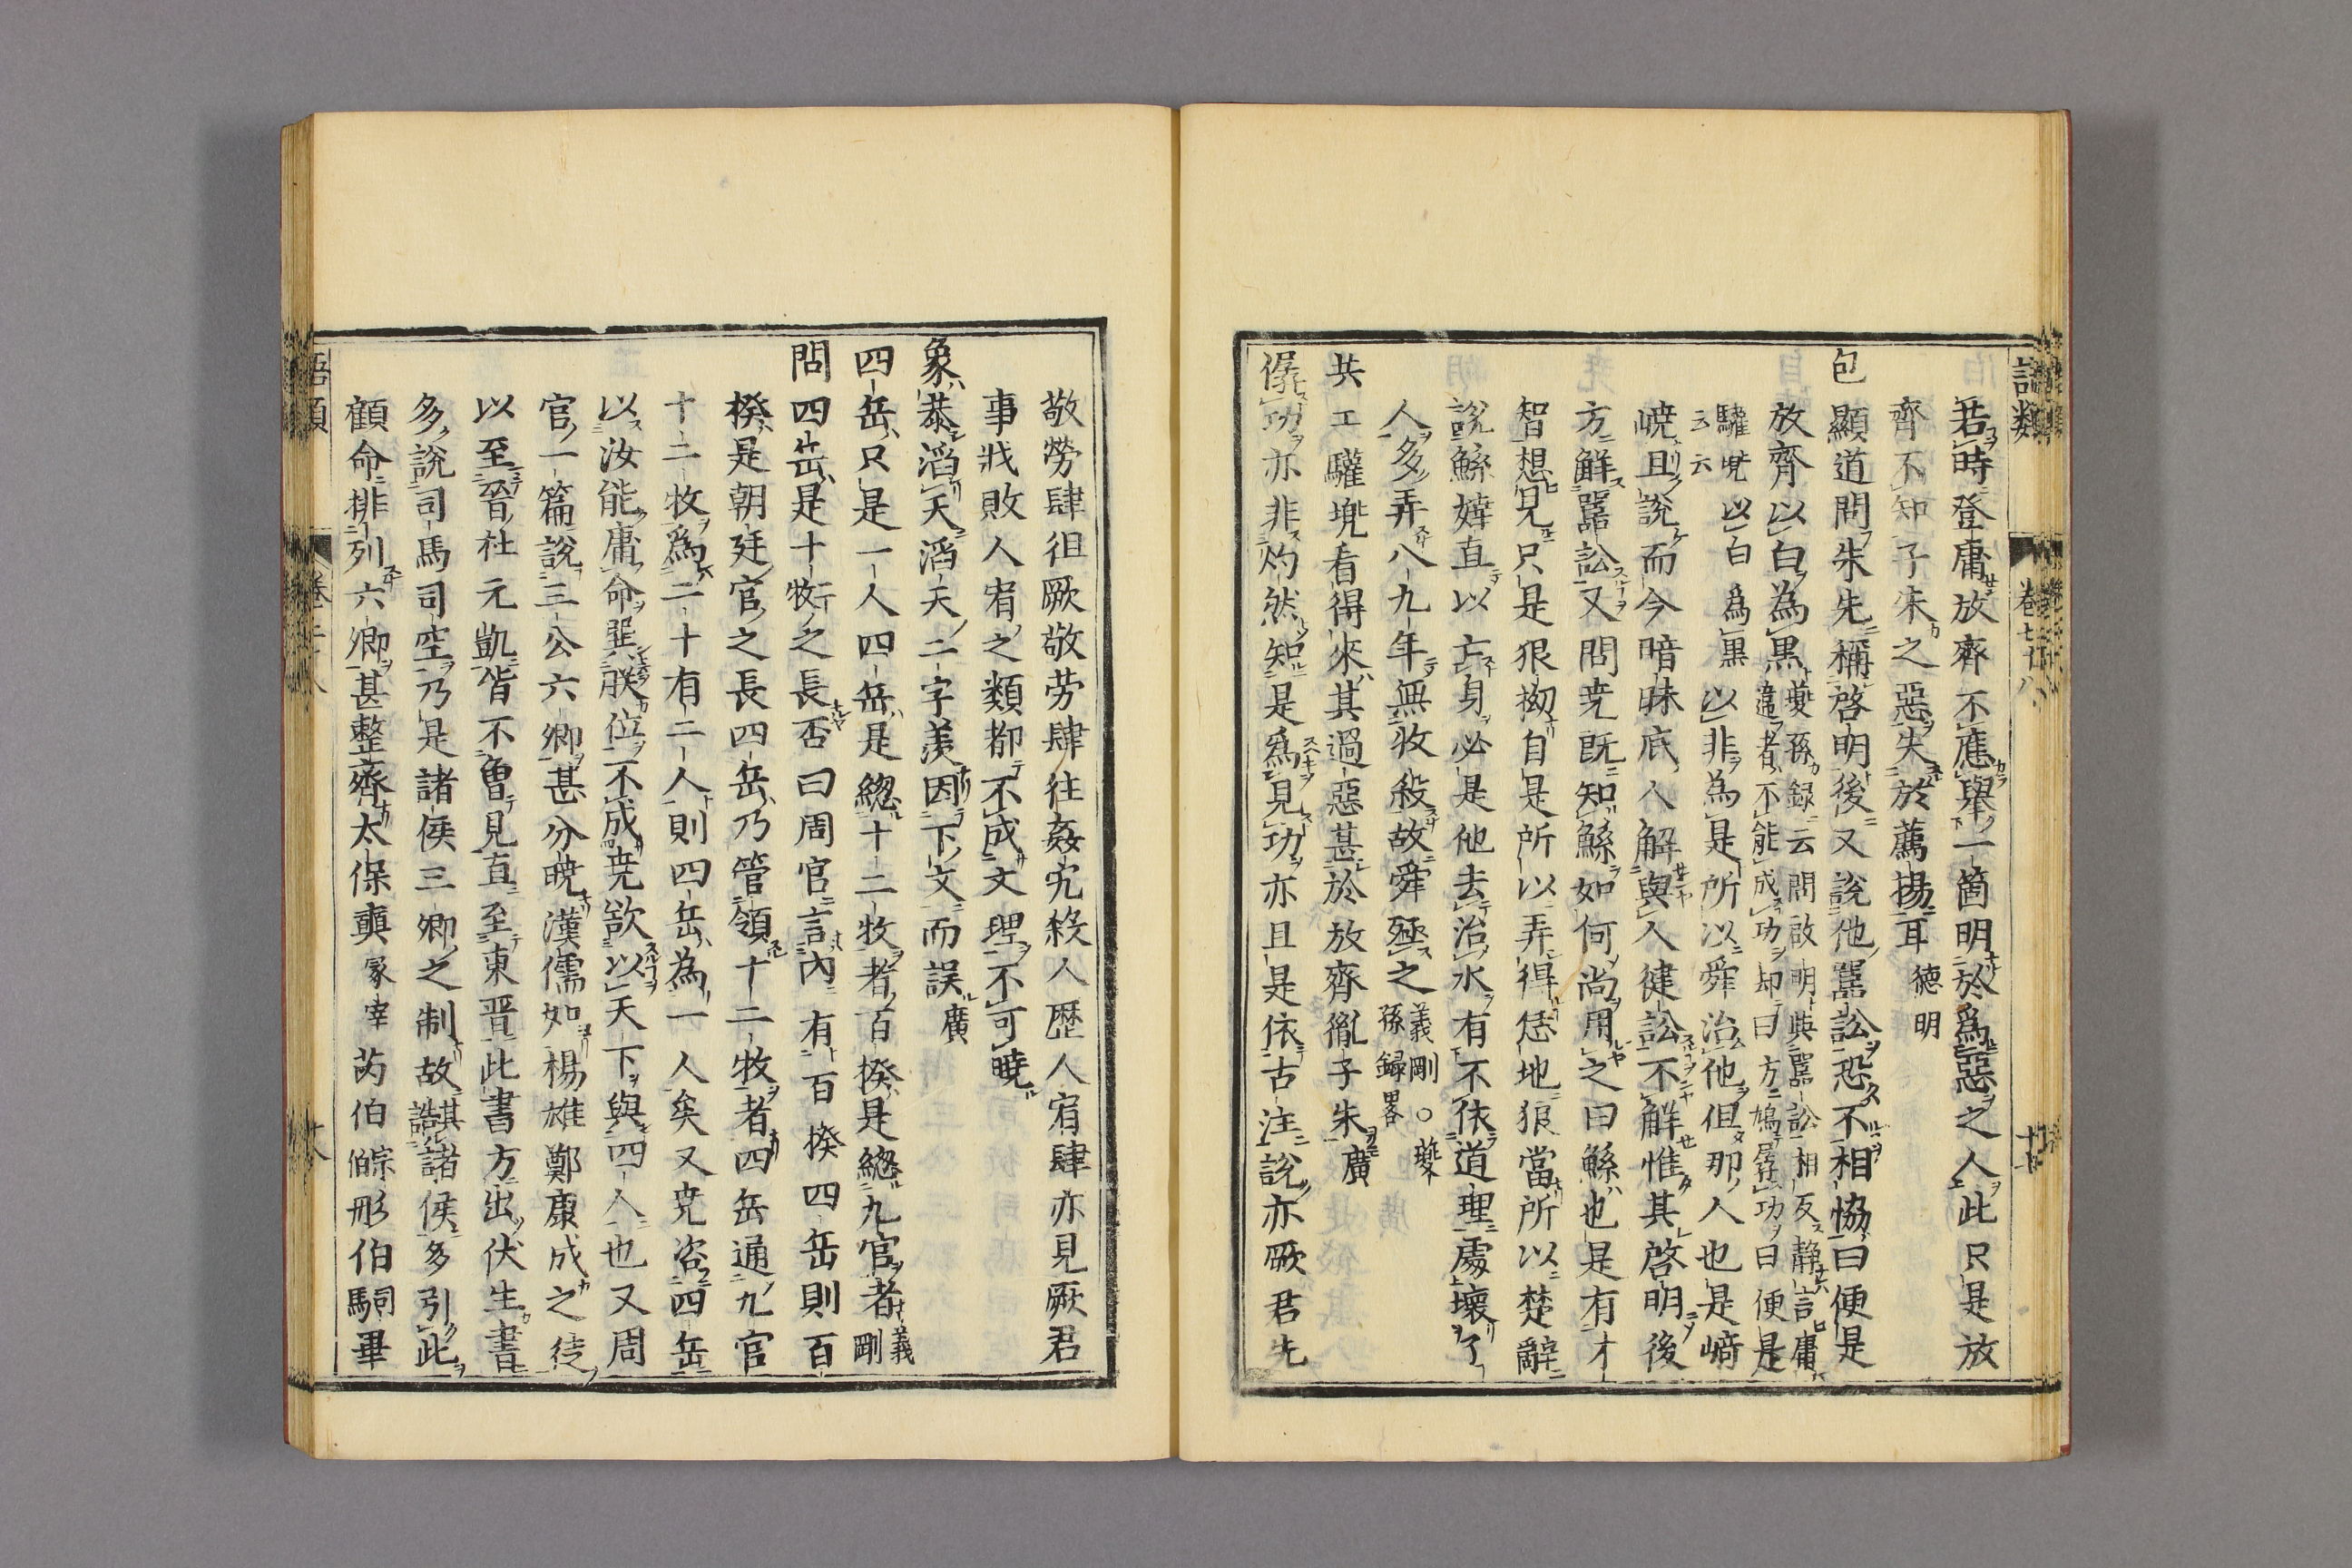 語類
卷七十八
若時登庸放齊不應擧一箇明於爲惡之人此只是放
齊不知子朱之惡失於薦揚耳德明
包顯道問朱先稱啓明後又說他嚚訟恐不相協曰便是
放齊以白為黑夔孫録云問啟明與嚚訟相反静言庸
違者不能成功却曰方鳩僝功曰便是
驩兠以白爲黒
云云
以非為是所以舜治他但那人也是崎
嶢且說而今暗昧底人解與人健訟不解惟其啓明後
方解嚚訟又問尭既知鯀如何尚用之曰鯀也是有才
智想見只是狠拗自是所以弄得恁地狼當所以楚辭
說鯀婞直以亡身必是他去治水有不依道理處壞了
人多弄八九年無收殺故舜殛之義剛○夔
孫録畧
共工驩兠看得來其過惡甚於放齊胤子朱廣
僝功亦非灼然知是爲見功亦且是依古注說亦厥君先
敬勞肆徂厥敬劳肆往姦宄殺人歷人宥肆亦見厥君
事戕敗人宥之類都不成文理不可曉
象恭滔天滔天二字羨因下文而誤廣
四岳只是一人四岳是總十二牧者百揆是總九官者義
剛
問四岳是十二牧之長否曰周官言內有百揆四岳則百
揆是朝廷官之長四岳乃管領十二牧者四岳通九官
十二牧為二十有二人則四岳為一人矣又尭咨四岳
以汝能庸命巽朕位不成尭欲以天下與四人也又周
官一篇說三公六卿甚分曉漢儒如楊雄鄭康成之徒
以至晉杜元凱皆不曾見直至東晋此書方出伏生書
多說司馬司空乃是諸侯三卿之制故其誥諸侯多引此
顧命排列六卿甚整齊太保奭冢宰芮伯宗伯彤伯司馬畢